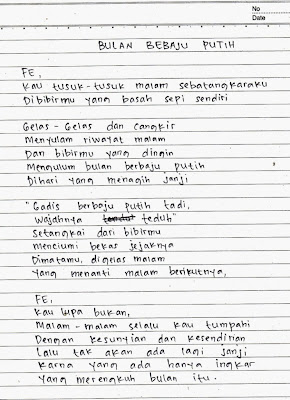 No
Date
BULAN BEBAJU PUTIH
FE,
Kau tusuk-tusuk malam sebatangkaraku
Dibibirmu yang basah sepi sendiri
Gelas-Gelas dan cangkir
Menyulam riwayat malam
Dan bibirmu yang dingin
Mengulum bulan berbaju putih
Dihari yang menagih janji
"Gadis berbaju putih tadi,
Wajahnya teduh"
Setangkai dari bibirmu
Menciumi bekas jejaknya
Dimatamu, digelas malam
Yang menanti malam berikutnya,
FE,
Kau lupa bukan,
Malam-malam selalu kau tumpahi
Dengan kesunyian dan kesendirian
Lalu tak akan ada lagi janji
Karna yang ada hanya ingkar
Yang merengkuh bulan itu.